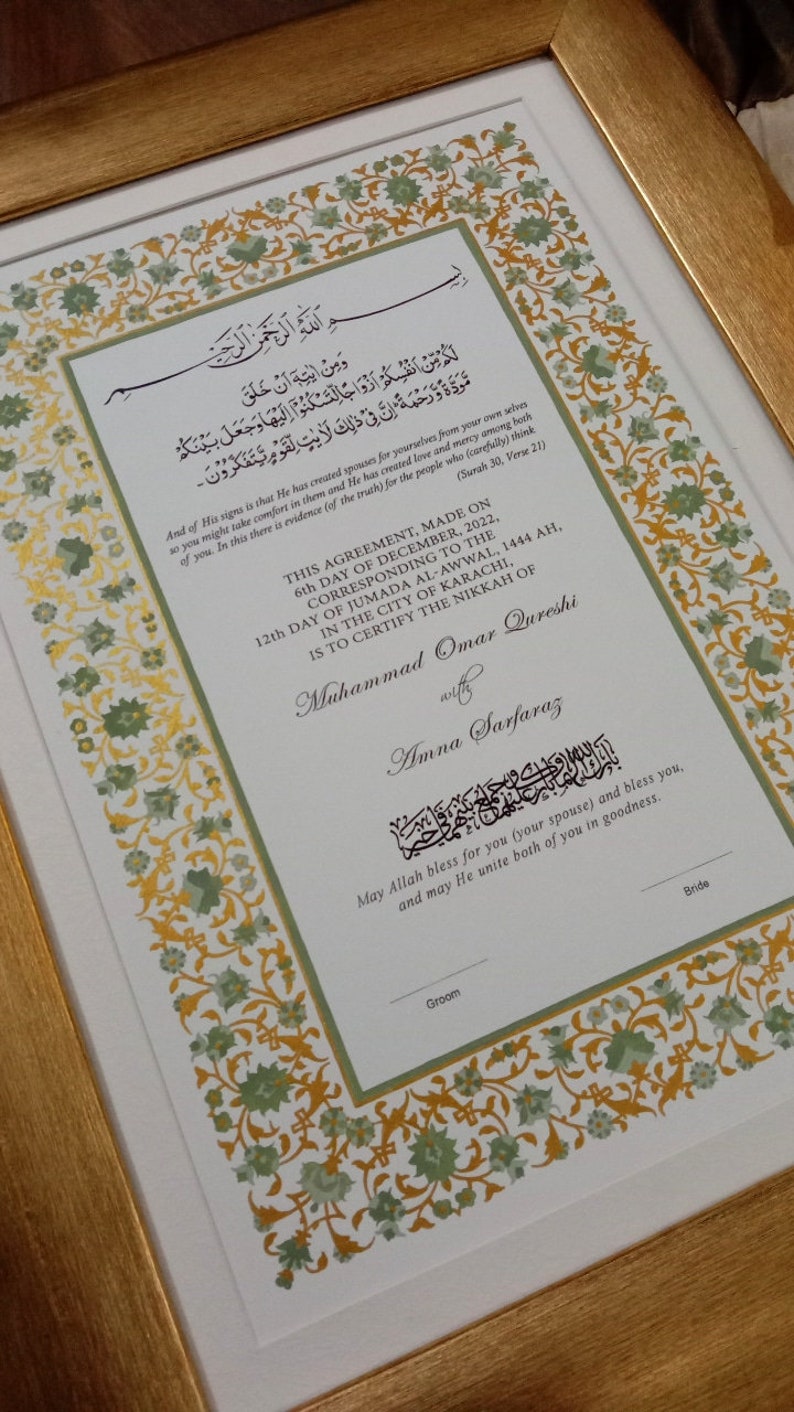 بِسْمِ اللهِ الرَّحْمٰنِ الرَّحِيْمِ
وَمِنْ اٰيٰتِهٖٓ اَنْ خَلَقَ
لَكُمْ مِّنْ اَنْفُسِكُمْ اَزْوَاجًا لِّتَسْكُنُوْٓا اِلَيْهَا وَجَعَلَ بَيْنَكُمْ
مَّوَدَّةً وَّرَحْمَةً ۗ اِنَّ فِيْ ذٰلِكَ لَاٰيٰتٍ لِّقَوْمٍ يَّتَفَكَّرُوْنَ -
And of His signs is that He has created spouses for yourselves from your own selves
so you might take comfort in them and He has created love and mercy among both
of you. In this there is evidence (of the truth) for the people who (carefully) think
(Surah 30, Verse 21)
THIS AGREEMENT, MADE ON
6th DAY OF DECEMBER, 2022,
CORRESPONDING TO THE
12th DAY OF JUMADA AL-AWWAL, 1444 AH,
IN THE CITY OF KARACHI,
IS TO CERTIFY THE NIKKAH OF
Muhammad Omar Qureshi
with
Amna Sarfaraz
بارك الله لهما وبارك عليهما وجمع بينهما في خير
May Allah bless for you (your spouse) and bless you,
and may He unite both of you in goodness.
Bride
Groom